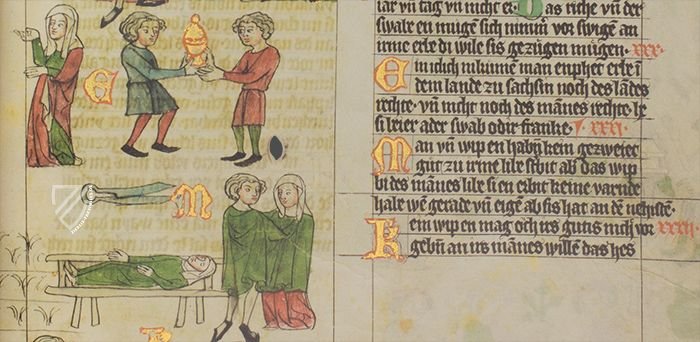 iar vñ tag vñ nicht er. Das riche vñ der
swale en mugē sich nimm̄ vor swigē an
irme erle di wile sis gezugen mugen. xxx.
Einclich nkumē man enphet erle ī
dem lande zu sachsin noch des lādes
rechte. vñ nicht noch des mānes rechte he
si beier ader swab odir franke. xxxi.
Man vñ wip en habin kein gezweiet
gut zu irme libe stbit ab das wip
bi des mānes libe si en erbit keine varnde
habe wē gerade vñ eigē ab sis hat an dē nehistē.
Kein wip en mag och irs gutis nich vor xxxii
gebñ an irs mānes willē das hes
E
M